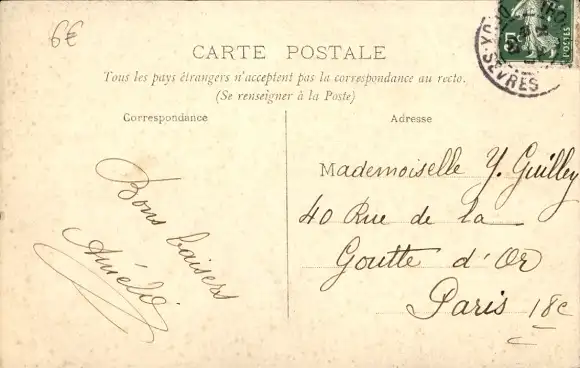 6€
CARTE POSTALE
Tous les pays étrangers n'acceptent pas la correspondance au recto.
(Se renseigner à la Poste)
Correspondance
Adresse
Bons baisers
Amélie
Mademoiselle Y. Guilley
40 Rue de la
Goutte d'Or
Paris 18e
5c
POSTES
SÈVRES